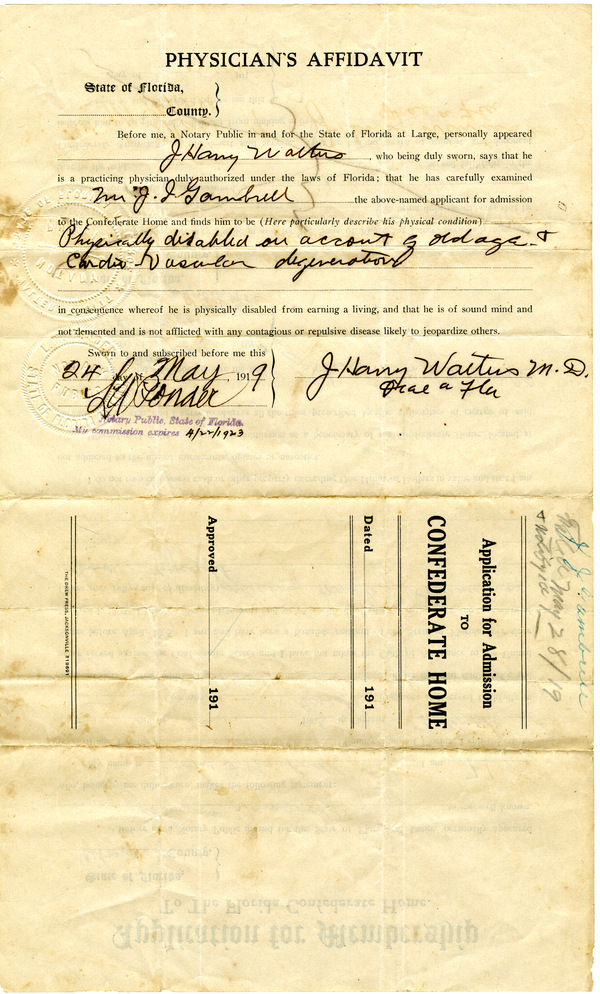 PHYSICIAN'S AFFIDAVIT
State of Florida,
County.
Before me, a Notary Public in and for the State of Florida at Large, personally appeared
J Harry Walters, who being duly sworn, says that he
is a practicing physician duly authorized under the laws of Florida; that he has carefully examined
Mr J. J Gambrell the above-named applicant for admission
to the Confederate Home and finds him to be (Here particularly describe his physical condition)
Physically disabled on account of old age &
Cardio-Vascular degeneration
in consequence whereof he is physically disabled from earning a living, and that he is of sound mind and
not demented and is not afflicted with any contagious or repulsive disease likely to jeopardize others.
Sworn to and subscribed before me this
24 day of May, 1919
J Harry Walters M.D.
Fla
Ponder
Notary Public, State of Florida.
My commission expires 4/22/1923
Application for Admission
TO
CONFEDERATE HOME
Dated 191
Approved 191
THE DREW PRESS, JACKSONVILLE
J J Gambrell
May 28/19
& notified
Application for Membership
To The Florida Confederate Home.
State of Florida,
County.